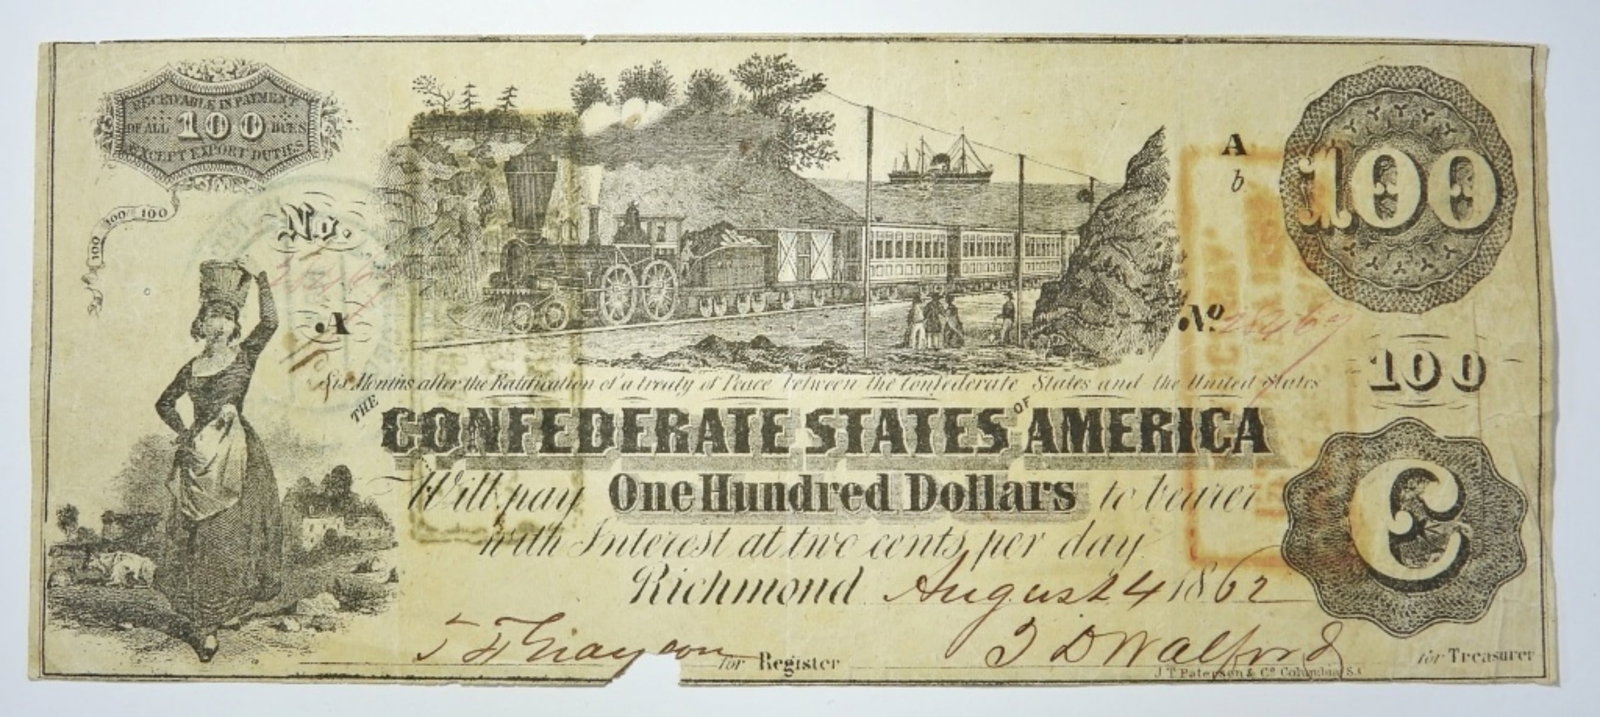 RECEIVABLE IN PAYMENT
OF ALL 100 DUES
EXCEPT EXPORT DUTIES
100 100 100
No.
A
A
b
100
No
100
Six Months after the Ratification of a treaty of Peace between the Confederate States and the United States
THE CONFEDERATE STATES OF AMERICA
Will pay One Hundred Dollars to bearer
with Interest at two cents per day
C
Richmond August 4 1862
for Register
J D Walford
for Treasurer
J. T. Paterson & Co Columbia, S.C